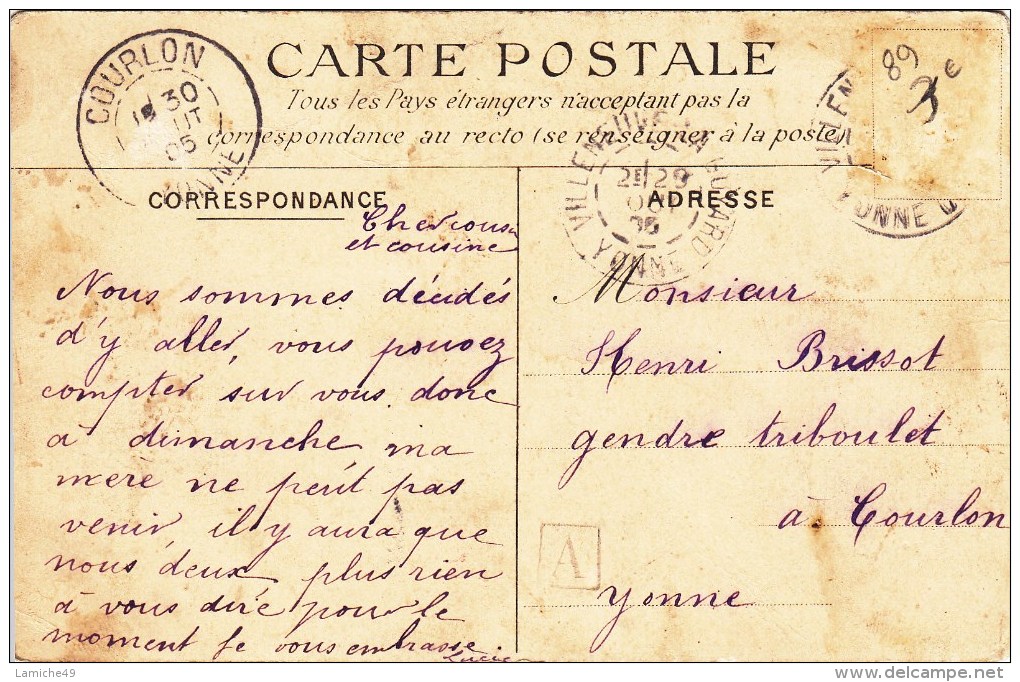 CARTE POSTALE
Tous les Pays étrangers n'acceptant pas la
correspondance au recto (se renseigner à la poste)
COURLON
30
05
YONNE
VILLENEUVE
GUYARD
2E 29
05
YONNE
VILLEN
YONNE
89
3€
CORRESPONDANCE
Cher cousin
et cousine
Nous sommes décidés
d'y aller, vous pouvez
compter sur vous donc
a dimanche, ma
mere ne peut pas
venir, il y aura que
nous deux plus rien
à vous dire pour le
moment je vous embrasse
Lucien
ADRESSE
Monsieur
Henri Brissot
gendre triboulet
à Courlon
Yonne
A
Lamiche49
www.delcampe.net